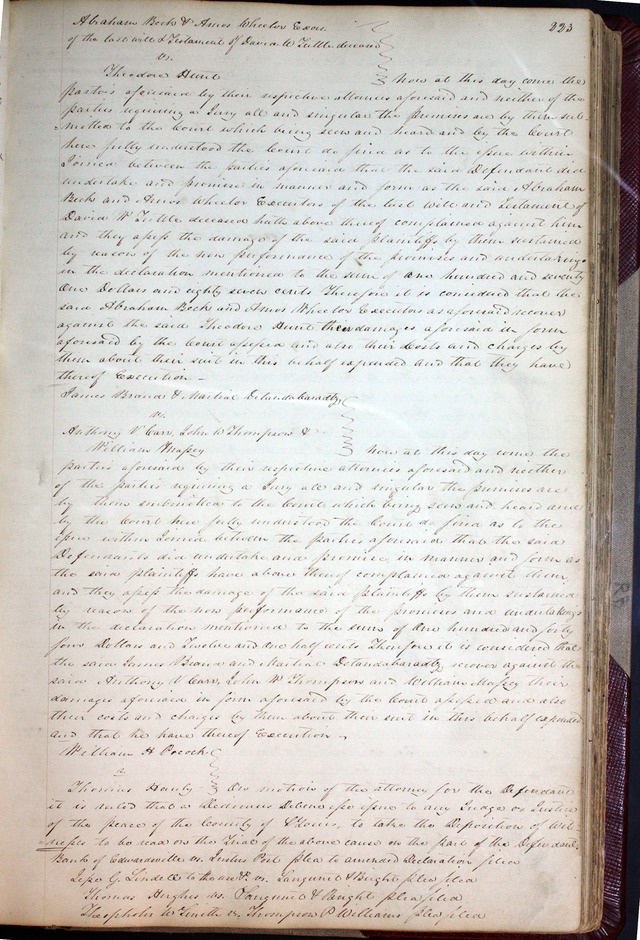 223
Abraham Beck & Amos Wheeler Exors.
of the last will & Testament of David W Tuttle deceased
vs.
Theodore Hunt Now at this day come the
parties aforesaid by their respective attornies aforesaid and neither of the
parties requiring a Jury all and singular the premises are by them sub
mitted to the Court which being seen and heard and by the Court
here fully understood the Court do find as to the issue within
Joined between the parties aforesaid that the said Defendant did
undertake and promise in manner and form as the said Abraham
Beck and Amos Wheeler Executors of the last will and Testament of
David W Tuttle deceased hath above thereof complained against him
and they assess the damage of the said plaintiffs by them sustained
by reason of the non performance of the promises and undertakings
in the declaration mentioned to the sum of one hundred and seventy
One Dollars and eighty seven cents Therefore it is considered that the
said Abraham Beck and Amos Wheeler Executors as aforesaid recover
against the said Theodore Hunt their damages aforesaid in form
aforesaid by the Court assessed and also their Costs and charges by
them about their suit in this behalf expended and that they have
thereof Execution —
James Brand & Martial Detandabaradtz
vs.
Anthony V Carr, John W Thompson &
William Massey Now at this day come the
parties aforesaid by their respective attornies aforesaid and neither
of the parties requiring a Jury all and singular the premises are
by them submitted to the Court which being seen and heard and
by the Court here fully understood the Court do find as to the
issue within Joined between the parties aforesaid that the said
Defendants did undertake and promise in manner and form as
the said plaintiffs have above thereof complained against them,
and they assess the damage of the said plaintiffs by them sustained
by reason of the non performance of the promises and undertakings
in the declaration mentioned to the sum of One hundred and forty
four Dollars and Twelve and one half cents Therefore it is considered that
the said James Brand and Martial Detandabaradtz recover against the
said Anthony V Carr, John W Thompson and William Massey their
damages aforesaid in form aforesaid by the Court assessed and also
their costs and charges by them about their suit in this behalf expended
and that he have thereof Execution —
William H Pocock
vs
Thomas Hanly On motion of the attorney for the Defendant
it is ruled that a Dedimus issue to any Judge or Justice
of the peace of the County of St Louis, to take the Deposition of Wit
nesses to be read on the Trial of the above cause on the part of the Defendant
Bank of Edwardsville vs. Justus Post plea to amended Declaration filed
Jesse G. Lindell to the use &c vs. Sanguinet & Bright plea filed
Thomas Hughes vs. Sanguinet & Bright plea filed
Theopholis W Smith vs. Thompson & P Williams plea filed